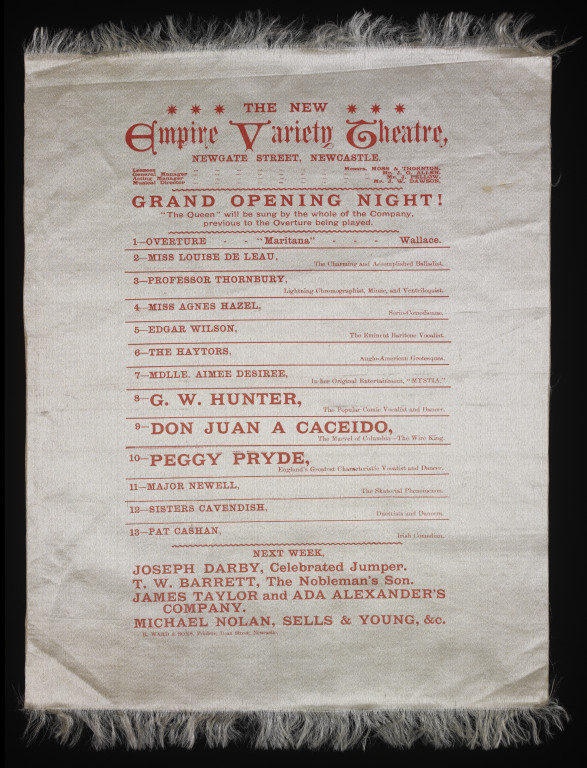 THE NEW
Empire Variety Theatre,
NEWGATE STREET, NEWCASTLE.
Lessees - - - - - - - Messrs. MOSS & THORNTON.
General Manager - - - - - - - Mr. J. D. ALLEN.
Acting Manager - - - - - - - Mr. J. PELLOW.
Musical Director - - - - - - - Mr. J. W. DAWSON.
GRAND OPENING NIGHT!
"The Queen" will be sung by the whole of the Company,
previous to the Overture being played.
1—OVERTURE - - "Maritana" - - - Wallace.
2—MISS LOUISE DE LEAU,
The Charming and Accomplished Balladist.
3—PROFESSOR THORNBURY,
Lightning Chromographist, Mimic, and Ventriloquist.
4—MISS AGNES HAZEL,
Serio-Comedienne.
5—EDGAR WILSON,
The Eminent Baritone Vocalist.
6—THE HAYTORS,
Anglo-American Grotesques.
7—MDLLE. AIMEE DESIREE,
In her Original Entertainment, "MYSTIA."
8—G. W. HUNTER,
The Popular Comic Vocalist and Dancer.
9—DON JUAN A CACEIDO,
The Marvel of Columbia—The Wire King.
10—PEGGY PRYDE,
England's Greatest Characteristic Vocalist and Dancer.
11—MAJOR NEWELL,
The Skatorial Phenomenon.
12—SISTERS CAVENDISH,
Duettists and Dancers.
13—PAT CASHAN,
Irish Comedian.
NEXT WEEK,
JOSEPH DARBY, Celebrated Jumper.
T. W. BARRETT, The Nobleman's Son.
JAMES TAYLOR and ADA ALEXANDER'S
COMPANY.
MICHAEL NOLAN, SELLS & YOUNG, &c.
R. WARD & SONS, Printers, Dean Street, Newcastle.